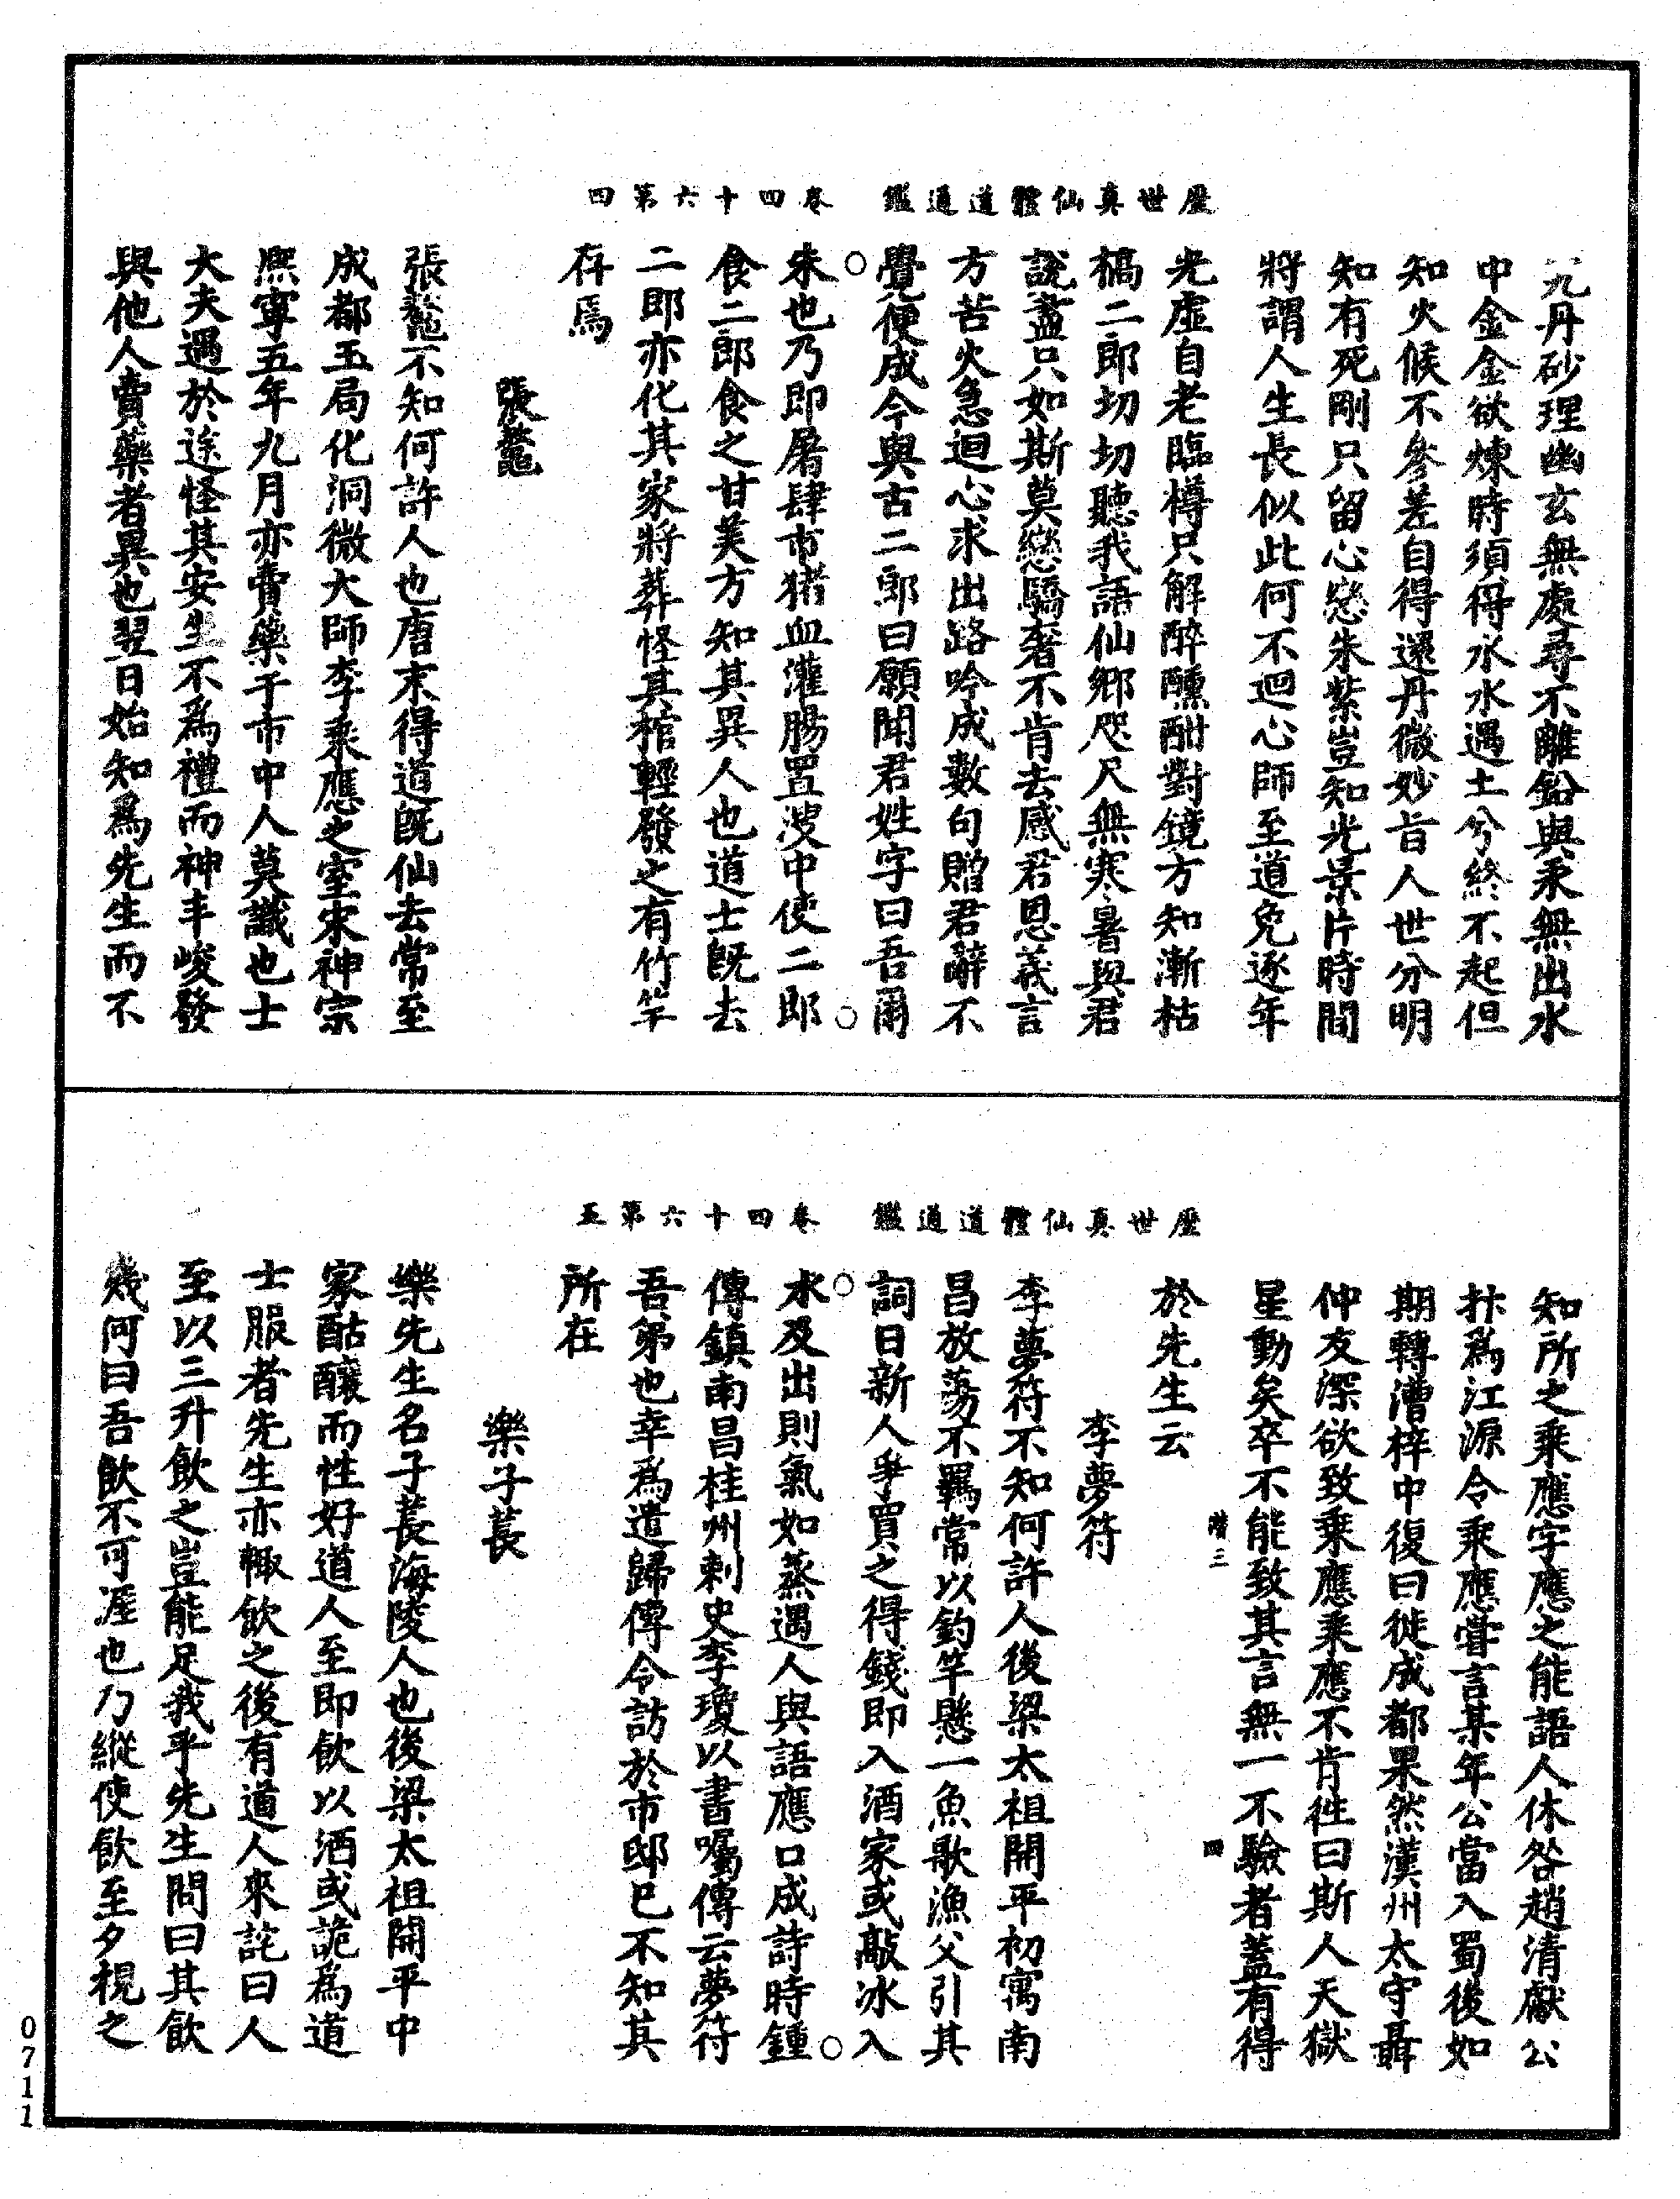 歷世真仙體道通鑑　卷四十六第四
九丹砂理幽玄無處尋不離鉛與汞無出水
中金金欲煉時須得水水遇土兮終不起但
知火候不參差自得還丹微妙旨人世分明
知有死剛只留心戀朱紫豈知光景片時間
將謂人生長似此何不迴心師至道免逐年
光虛自老臨樽只解醉醺酣對鏡方知漸枯
槁二郎切切聽我語仙鄉咫尺無寒暑與君
說盡只如斯莫戀驕奢不肯去感君恩義言
方苦火急迴心求出路吟成數句贈君辭不
覺便成今與古二郎曰願聞君姓字曰吾爾
朱也乃即屠肆市猪血灌腸置溲中使二郎
食二郎食之甘美方知其異人也道士既去
二郎亦化其家將葬怪其棺輕發之有竹竿
存焉
張鼇
張鼇不知何許人也唐末得道既仙去常至
成都玉局化洞微大師李乘應之室宋神宗
熙寧五年九月亦賣藥于市中人莫識也士
大夫遇於途怪其安生不為禮而神丰峻發
與他人賣藥者異也翌日始知爲先生而不
歷世真仙體道通鑑　卷四十六第五
知所之乘應字應之能語人休咎趙清獻公
抃爲江源令乘應嘗言某年公當入蜀後如
期轉漕梓中復曰徙成都果然漢州太守聶
仲友深欲致乘應乘應不肯徃曰斯人天獄
星動矣卒不能致其言無一不驗者蓋有得
於先生云
李夢符
李夢符不知何許人後梁太祖開平初寓南
昌放蕩不羈常以釣竿懸一魚歌漁父引其
詞日新人爭買之得錢即入酒家或敲冰入
水及出則氣如蒸遇人與語應口成詩時鍾
傳鎮南昌桂州刺史李瓊以書囑傳云夢符
吾弟也幸爲遣歸傳令訪於市邸已不知其
所在
樂子萇
樂先生名子萇海陵人也後梁太祖開平中
家酤釀而性好道人至即飲以酒或詭爲道
士服者先生亦輙飲之後有道人來詫曰人
至以三升飲之豈能足我乎先生問曰其飲
幾何曰吾飲不可涯也乃縱使飲至夕視之
四
0711